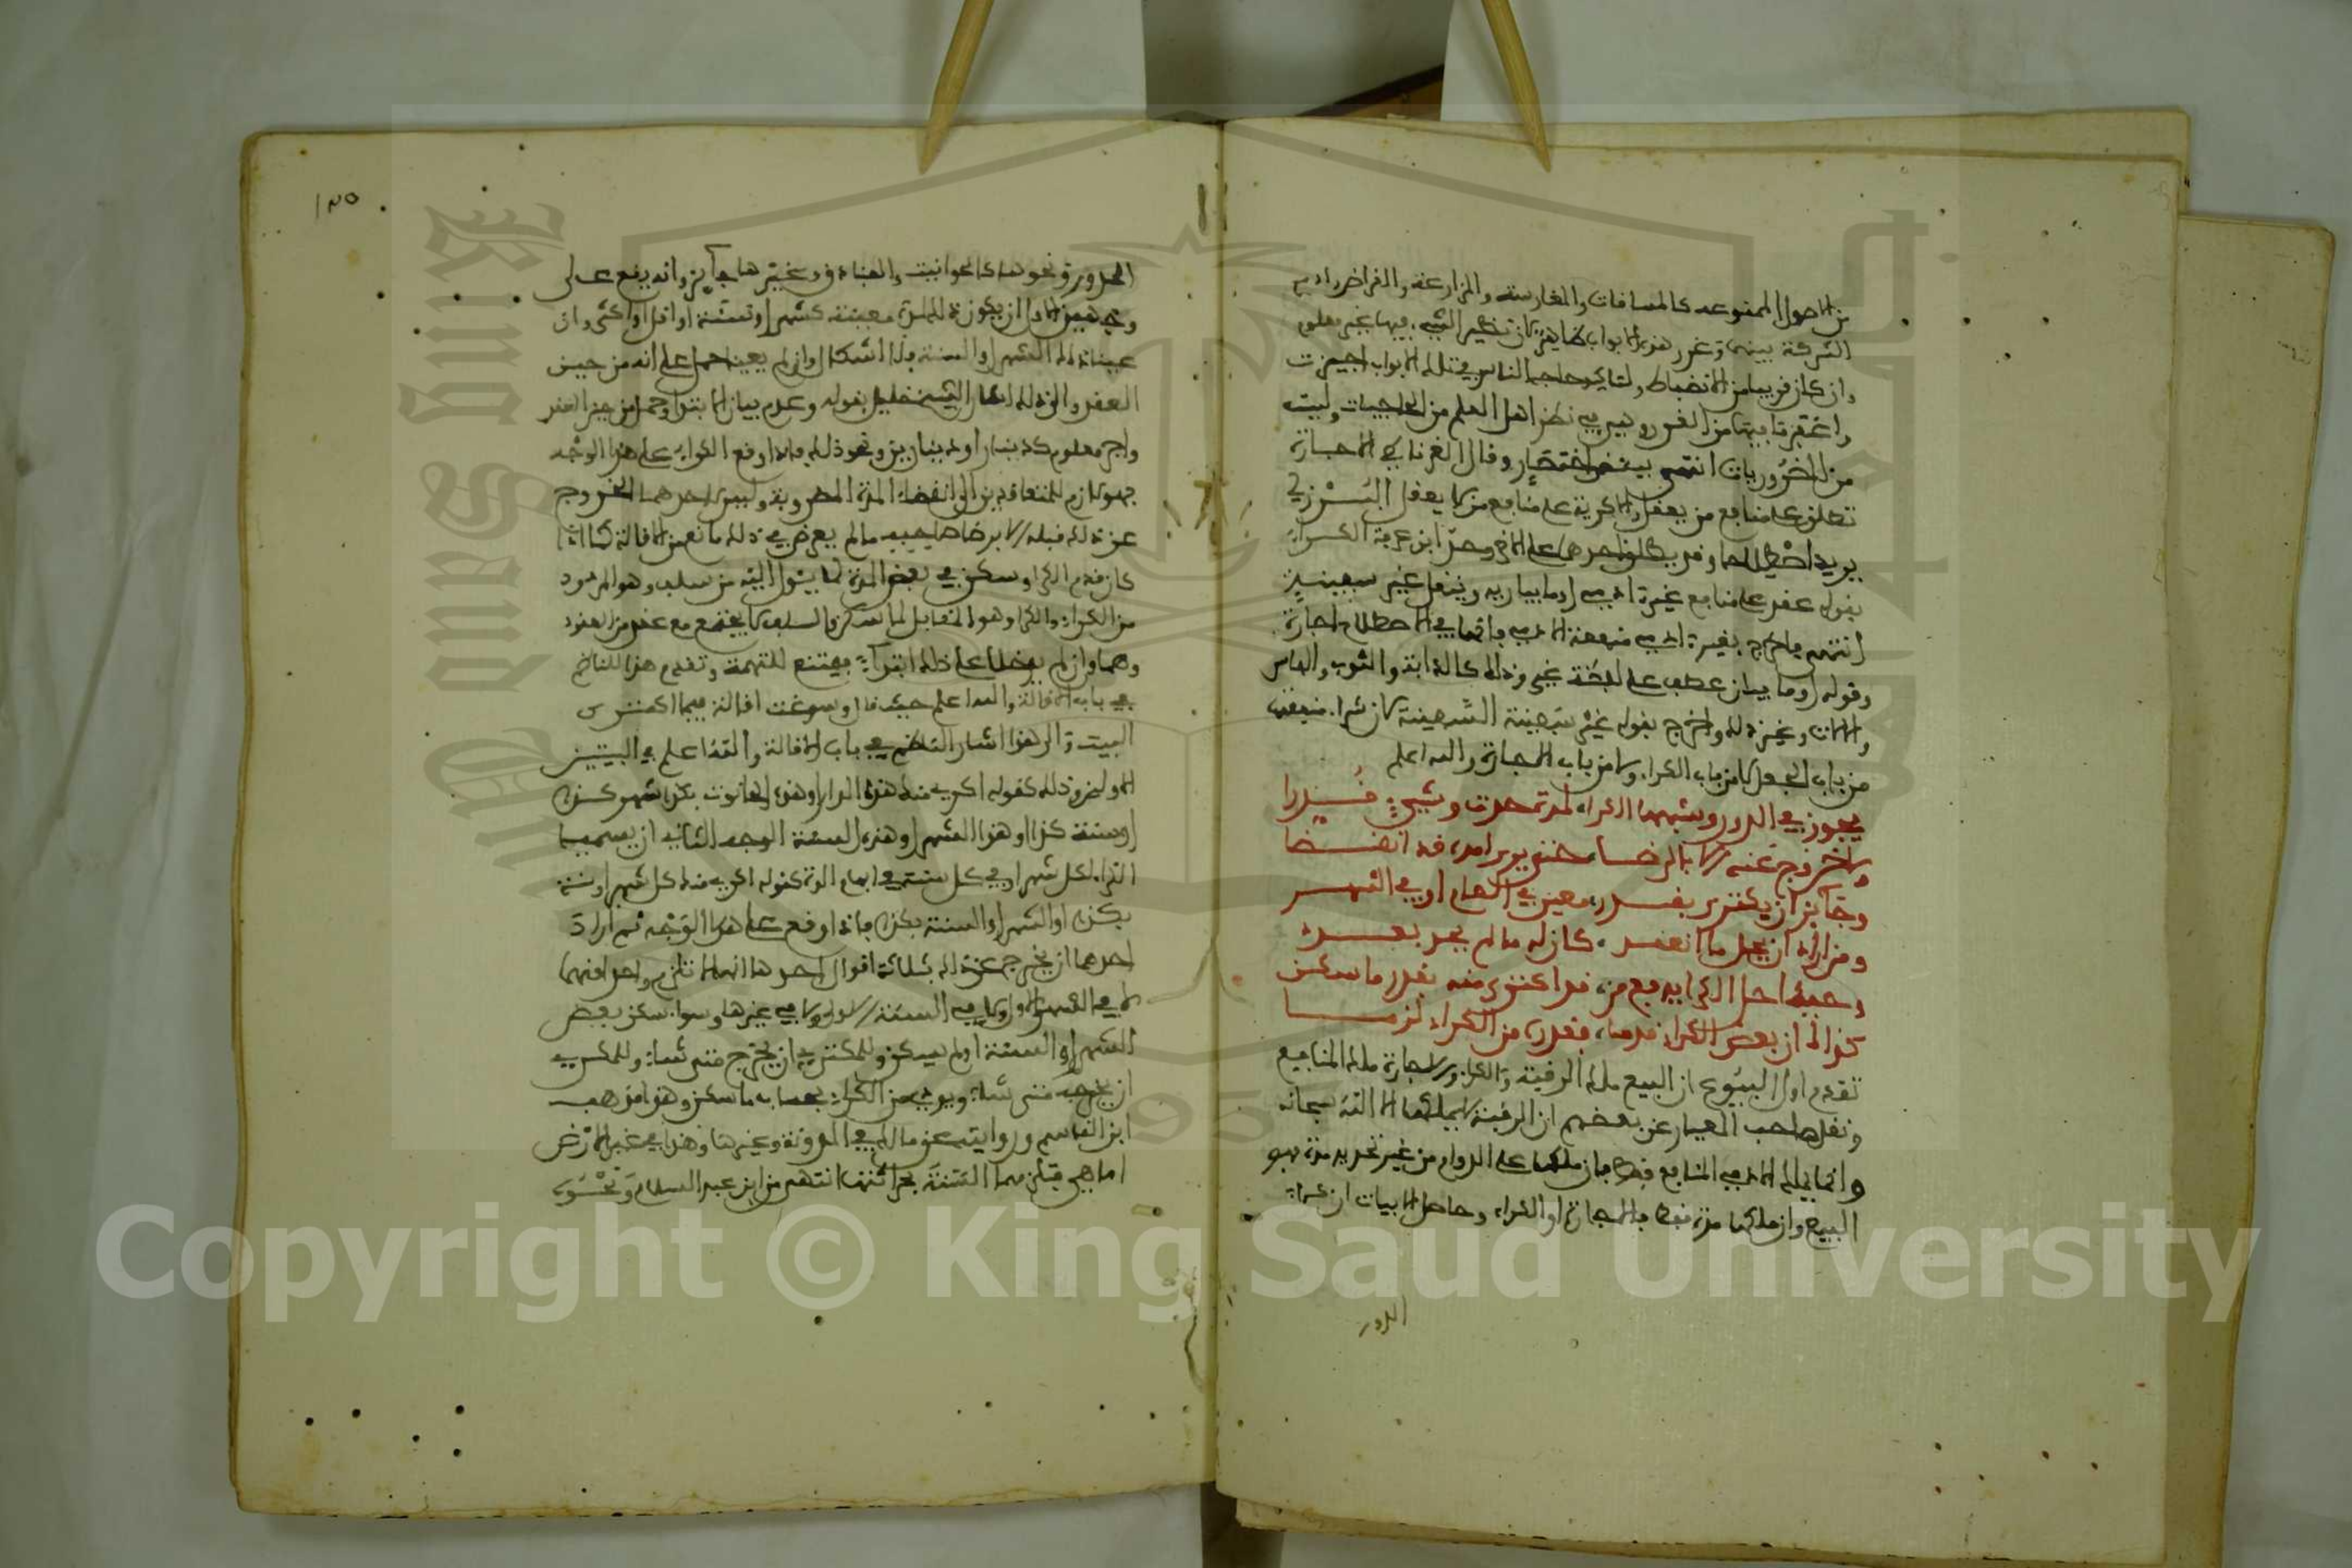 من الاصول الممنوعة كالمساقات والمغارسة والمزارعة والقراض وادى
الشركة بينهما وغرر هذه الابواب ظاهر كان تحضير الشيء فيها بغير معلوم
وان كان قريبا من الانضباط ولتاكيد حاجة الناس في تلك الابواب اجيزت
واغتفر ما فيها من الغرر وهي في نظر اهل العلم من الحاجيات وليست
من الضروريات انتهى ببعض اختصار وقال الغرناطي الاجارة
تطلق على منافع من يعقل والاكرية على منافع من لا يعقل البرزلي
يريد اصطلاحا وقد يطلق احدهما على الاخر وحد ابن عرفة الكراء
بقوله عقد على منافع غير ادمي او ما يبان به وينقل غير سفينة
انتهى واخرج بغير ادمي منفعة الادمي فانها في الاصطلاح اجارة
وقوله او ما يبان عطف على لفظة غير وذلك كالدابة والثوب والفاس
والالات وغير ذلك واخرج بقوله غير سفينة السفينة كان شراء منفعته
من باب الجعل لا من باب الكراء ولا من باب الاجارة والله اعلم
يجوز في الدور وشبهها الكراء لمدة حدت وشيء قدرا
ولا خروج عنه الا بالرضا حتى يرى امده قد انقضا
وجائز ان يكتري بقدر معين في العام او في الشهر
ومن اراد ان يحل ما انعقد كان له ما لم يحد بعدد
وحيث حل الكرا يدفع من قد اكترى منه بقدر ما سكن
كذاك ان بعض الكراء قدما فقدره من الكراء لزما
تقدم اول البيوع ان البيع ملك الرقبة والكراء والاجارة ملك المنافع
ونقل صاحب المعيار عن بعضهم ان الرقبة لا يملكها الا الله سبحانه
وانما يملك الادمي المنافع فقط فان ملكها على الدوام من غير تحديد مدة فهو
البيع وان ملكها مدة فقط فالاجارة او الكراء وحاصل الابيات ان كراء
الدور
١٣٥
الدور ونحوها كالحوانيت والفنادق وغيرها جائز وانه يقع على
وجهين الاول ان يكون ذلك لمدة معينة كشهر او سنة او اقل او اكثر وان
عينا ذلك الشهر او السنة فلا اشكال وان لم يعينا حمل على انه من حين
العقد والى ذلك اشار الشيخ خليل بقوله وعدم بيان الابتداء وحمل من حين العقد
واجر معلوم كدينار او دينارين ونحو ذلك فاذا وقع الكراء على هذا الوجه
فهو لازم للمتعاقدين الى انقضاء المدة المضروبة وليس لاحدهما الخروج
عن ذلك قبله الا برضا صاحبه ما لم يعرض في ذلك مانع من الاقالة كما اذا
كان قدم الكرا وسكن في بعض المدة لما يئول اليه من سلف وهو المردود
من الكراء والكرا وهو المقابل لما سكن والسلف لا يجتمع مع عقد من العقود
وهما وان لم يدخلا على ذلك ابتداء فيمتنع للتهمة وتقدم هذا للناظم
في باب الاقالة والله اعلم حيث قال وسوغت اقالة فيما اكتري
البيت والى هذا اشار الناظم في باب الاقالة والله اعلم في البيتين
الاولين وذلك كقوله اكري منك هذه الدار او هذه الحانوت بكذا شهر كذا
او سنة كذا او هذا الشهر او هذه السنة الوجه الثاني ان يسميا
الكراء لكل شهر او في كل سنة ابهام المدة كقوله اكري منك كل شهر او سنة
بكذا او الشهر او السنة بكذا فاذا وقع على هذا الوجه ثم اراد
احدهما ان يخرج عن ذلك بثلاثة اقوال احدها انه لا تلزم واحدا منهما
لا في الشهر الاول ولا في السنة الاولى ولا في غيرها وسواء سكن بعض
الشهر او السنة او لم يسكن وللمكتري ان يخرج متى شاء وللمكري
ان يخرجه متى شاء ويودي من الكراء بحساب ما سكن وهو مذهب
ابن القاسم وروايته عن مالك في المدونة وغيرها وهذا في غير الارض
اما هي فتلزمها السنة بحراثتها انتهى من ابن عبد السلام ونحوه
Copyright © King Saud University